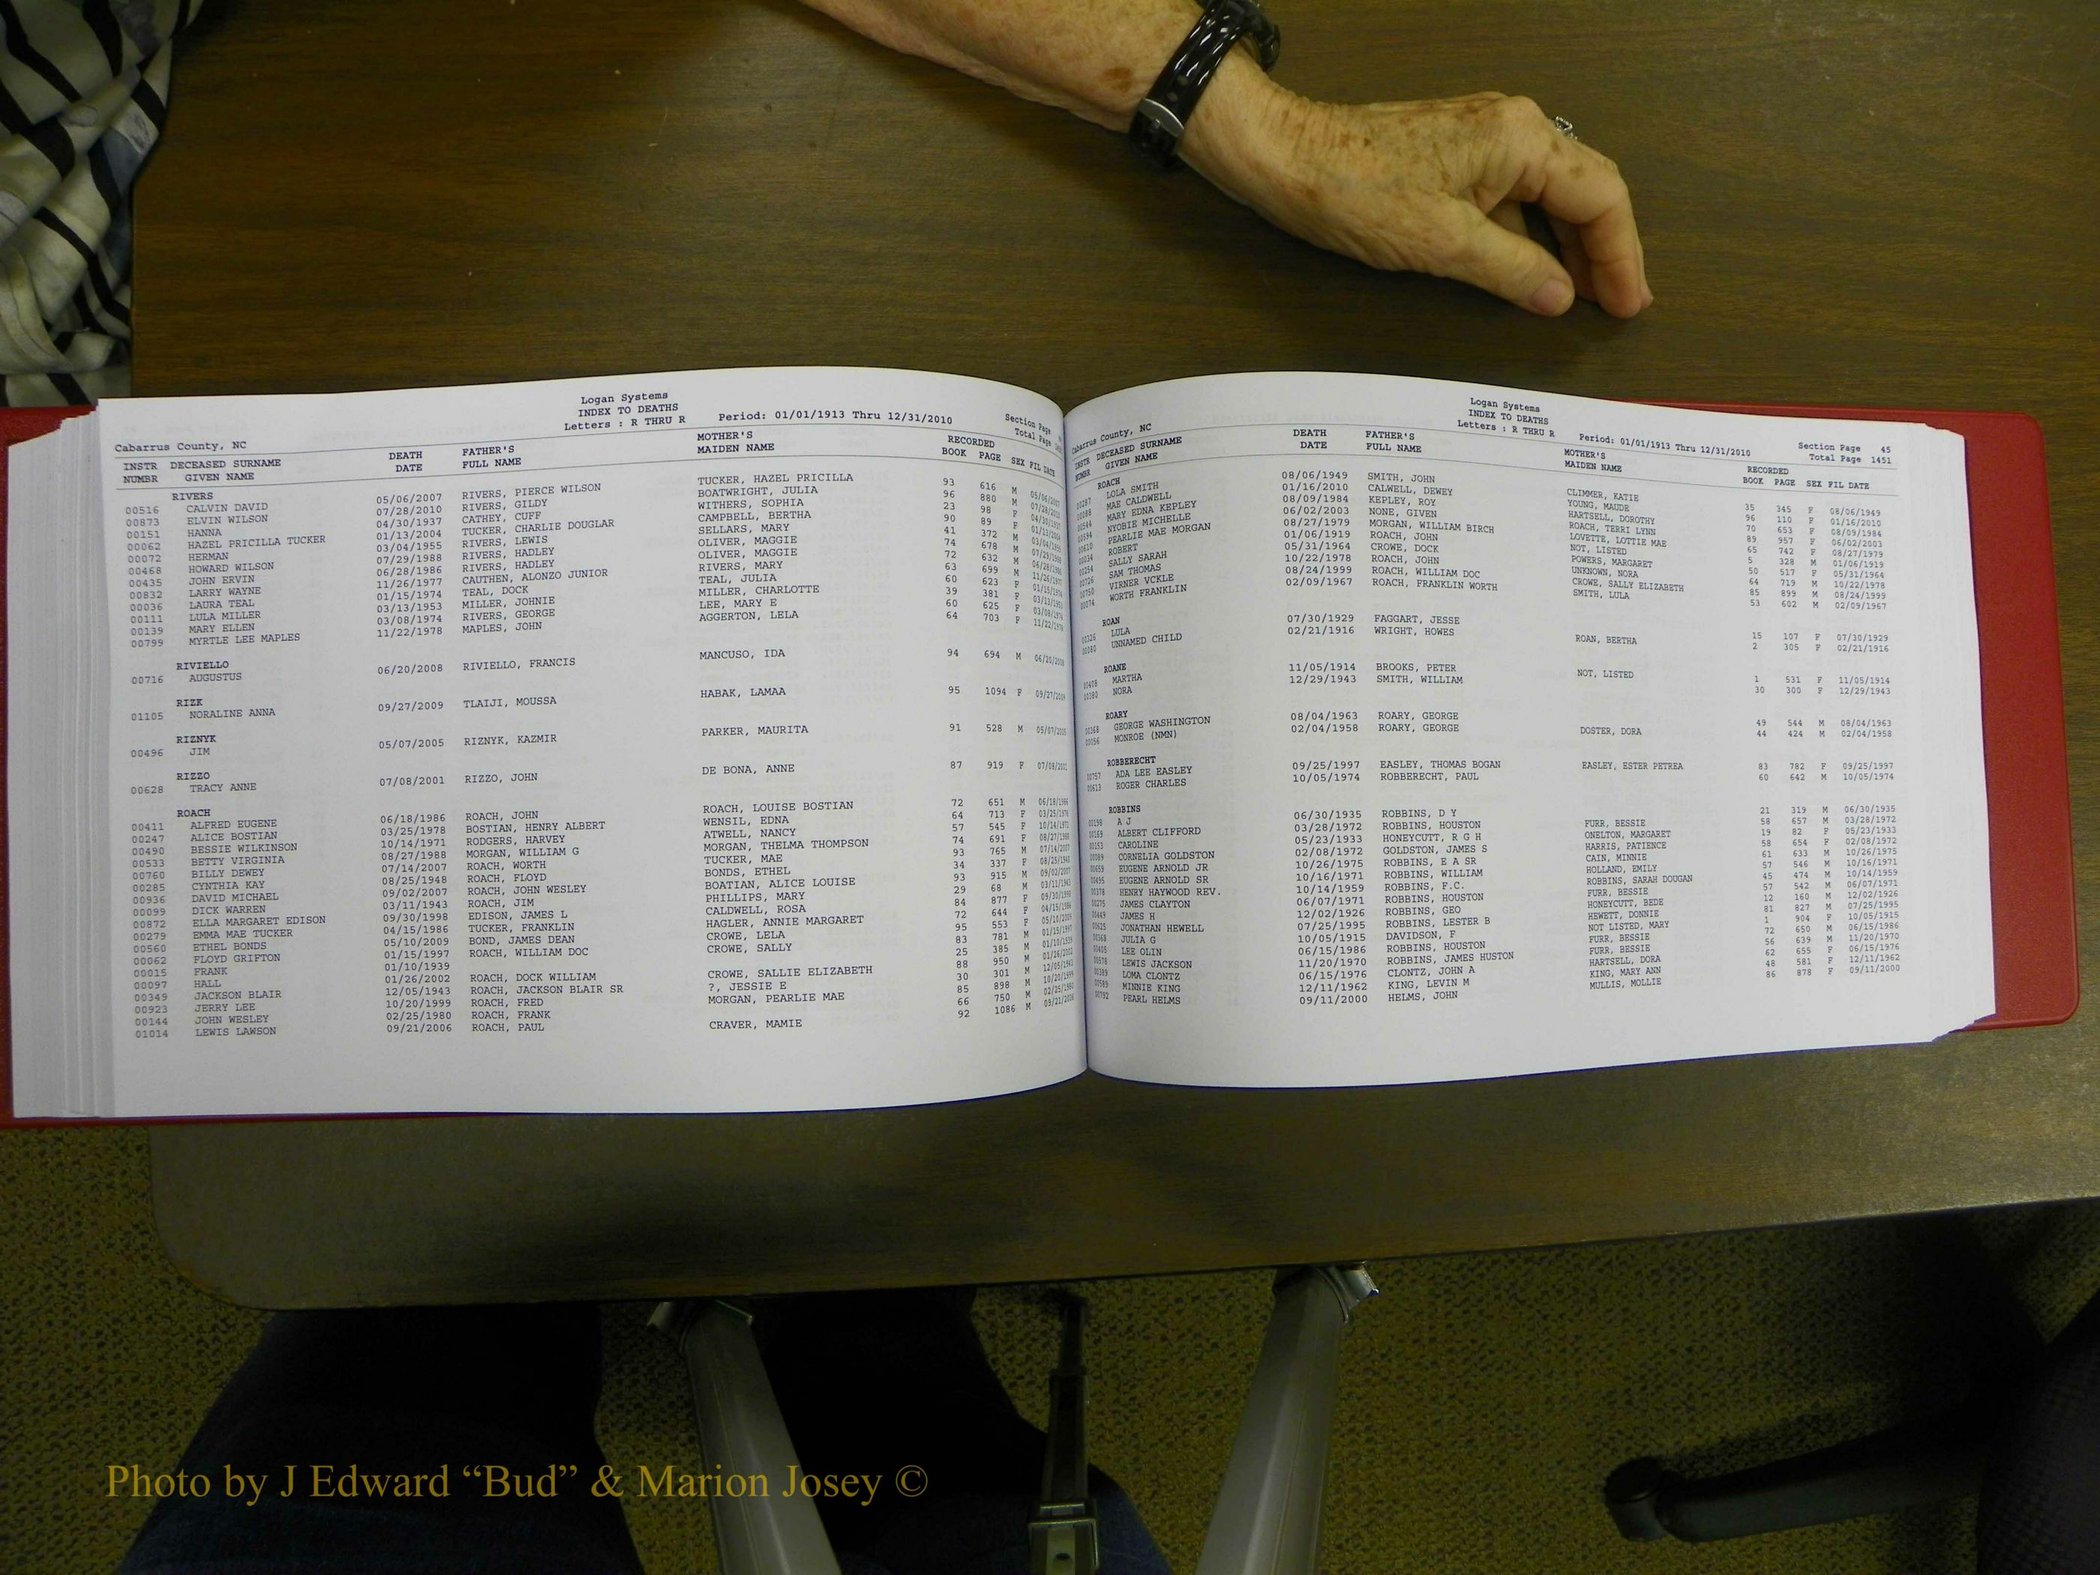 Logan Systems
INDEX TO DEATHS
Letters : R THRU R Period: 01/01/1913 Thru 12/31/2010
Section Page
Cabarrus County, NC Total Page
INSTR DECEASED SURNAME DEATH FATHER'S MOTHER'S RECORDED
NUMBR GIVEN NAME DATE FULL NAME MAIDEN NAME BOOK PAGE SEX FIL DATE
RIVERS
00516 CALVIN DAVID 05/06/2007 RIVERS, PIERCE WILSON TUCKER, HAZEL PRICILLA 93 616 M 05/06/2007
00873 ELVIN WILSON 07/28/2010 RIVERS, GILDY BOATWRIGHT, JULIA 96 880 M 07/28/2010
00151 HANNA 04/30/1937 CATHEY, CUFF WITHERS, SOPHIA 23 98 F 04/30/1937
00062 HAZEL PRICILLA TUCKER 01/13/2004 TUCKER, CHARLIE DOUGLAR CAMPBELL, BERTHA 90 89 F 01/13/2004
00072 HERMAN 03/04/1955 RIVERS, LEWIS SELLARS, MARY 41 372 M 03/04/1955
00468 HOWARD WILSON 07/29/1988 RIVERS, HADLEY OLIVER, MAGGIE 74 678 M 07/29/1988
00435 JOHN ERVIN 06/28/1986 RIVERS, HADLEY OLIVER, MAGGIE 72 632 M 06/28/1986
00832 LARRY WAYNE 11/26/1977 CAUTHEN, ALONZO JUNIOR RIVERS, MARY 63 699 M 11/26/1977
00036 LAURA TEAL 01/15/1974 TEAL, DOCK TEAL, JULIA 60 623 F 01/15/1974
00111 LULA MILLER 03/13/1953 MILLER, JOHNIE MILLER, CHARLOTTE 39 381 F 03/13/1953
00139 MARY ELLEN 03/08/1974 RIVERS, GEORGE LEE, MARY E 60 625 F 03/08/1974
00799 MYRTLE LEE MAPLES 11/22/1978 MAPLES, JOHN AGGERTON, LELA 64 703 F 11/22/1978
RIVIELLO
00716 AUGUSTUS 06/20/2008 RIVIELLO, FRANCIS MANCUSO, IDA 94 694 M 06/20/2008
RIZK
01105 NORALINE ANNA 09/27/2009 TLAIJI, MOUSSA HABAK, LAMAA 95 1094 F 09/27/2009
RIZNYK
00496 JIM 05/07/2005 RIZNYK, KAZMIR PARKER, MAURITA 91 528 M 05/07/2005
RIZZO
00628 TRACY ANNE 07/08/2001 RIZZO, JOHN DE BONA, ANNE 87 919 F 07/08/2001
ROACH
00411 ALFRED EUGENE 06/18/1986 ROACH, JOHN ROACH, LOUISE BOSTIAN 72 651 M 06/18/1986
00247 ALICE BOSTIAN 03/25/1978 BOSTIAN, HENRY ALBERT WENSIL, EDNA 64 713 F 03/25/1978
00490 BESSIE WILKINSON 10/14/1971 RODGERS, HARVEY ATWELL, NANCY 57 545 F 10/14/1971
00533 BETTY VIRGINIA 08/27/1988 MORGAN, WILLIAM G MORGAN, THELMA THOMPSON 74 691 F 08/27/1988
00760 BILLY DEWEY 07/14/2007 ROACH, WORTH TUCKER, MAE 93 765 M 07/14/2007
00285 CYNTHIA KAY 08/25/1948 ROACH, FLOYD BONDS, ETHEL 34 337 F 08/25/1948
00936 DAVID MICHAEL 09/02/2007 ROACH, JOHN WESLEY BOATIAN, ALICE LOUISE 93 915 M 09/02/2007
00099 DICK WARREN 03/11/1943 ROACH, JIM PHILLIPS, MARY 29 68 M 03/11/1943
00872 ELLA MARGARET EDISON 09/30/1998 EDISON, JAMES L CALDWELL, ROSA 84 877 F 09/30/1998
00279 EMMA MAE TUCKER 04/15/1986 TUCKER, FRANKLIN HAGLER, ANNIE MARGARET 72 644 F 04/15/1986
00560 ETHEL BONDS 05/10/2009 BOND, JAMES DEAN CROWE, LELA 95 553 F 05/10/2009
00062 FLOYD GRIFTON 01/15/1997 ROACH, WILLIAM DOC CROWE, SALLY 83 781 M 01/15/1997
00015 FRANK 01/10/1939 25 385 M 01/10/1939
00097 HALL 01/26/2002 ROACH, DOCK WILLIAM CROWE, SALLIE ELIZABETH 88 950 M 01/26/2002
00349 JACKSON BLAIR 12/05/1943 ROACH, JACKSON BLAIR SR ?, JESSIE E 30 301 M 12/05/1943
00923 JERRY LEE 10/20/1999 ROACH, FRED MORGAN, PEARLIE MAE 85 898 M 10/20/1999
00144 JOHN WESLEY 02/25/1980 ROACH, FRANK 66 750 M 02/25/1980
01014 LEWIS LAWSON 09/21/2006 ROACH, PAUL CRAVER, MAMIE 92 1086 M 09/21/2006
Logan Systems
INDEX TO DEATHS
Letters : R THRU R Period: 01/01/1913 Thru 12/31/2010
Section Page 45
Cabarrus County, NC Total Page 1451
INSTR DECEASED SURNAME DEATH FATHER'S MOTHER'S RECORDED
NUMBR GIVEN NAME DATE FULL NAME MAIDEN NAME BOOK PAGE SEX FIL DATE
ROACH
00287 LOLA SMITH 08/06/1949 SMITH, JOHN CLIMMER, KATIE 35 345 F 08/06/1949
00088 MAE CALDWELL 01/16/2010 CALWELL, DEWEY YOUNG, MAUDE 96 110 F 01/16/2010
00544 MARY EDNA KEPLEY 08/09/1984 KEPLEY, ROY HARTSELL, DOROTHY 70 653 F 08/09/1984
00594 NYOBIE MICHELLE 06/02/2003 NONE, GIVEN ROACH, TERRI LYNN 89 957 F 06/02/2003
00610 PEARLIE MAE MORGAN 08/27/1979 MORGAN, WILLIAM BIRCH LOVETTE, LOTTIE MAE 65 742 F 08/27/1979
00034 ROBERT 01/06/1919 ROACH, JOHN NOT, LISTED 5 328 M 01/06/1919
00254 SALLY SARAH 05/31/1964 CROWE, DOCK POWERS, MARGARET 50 517 F 05/31/1964
00726 SAM THOMAS 10/22/1978 ROACH, JOHN UNKNOWN, NORA 64 719 M 10/22/1978
00750 VIRNER VCKLE 08/24/1999 ROACH, WILLIAM DOC CROWE, SALLY ELIZABETH 85 899 M 08/24/1999
00074 WORTH FRANKLIN 02/09/1967 ROACH, FRANKLIN WORTH SMITH, LULA 53 602 M 02/09/1967
ROAN
00326 LULA 07/30/1929 FAGGART, JESSE 15 107 F 07/30/1929
00080 UNNAMED CHILD 02/21/1916 WRIGHT, HOWES ROAN, BERTHA 2 305 F 02/21/1916
ROANE
00408 MARTHA 11/05/1914 BROOKS, PETER NOT, LISTED 1 531 F 11/05/1914
00380 NORA 12/29/1943 SMITH, WILLIAM 30 300 F 12/29/1943
ROARY
00368 GEORGE WASHINGTON 08/04/1963 ROARY, GEORGE 49 544 M 08/04/1963
00056 MONROE (NMN) 02/04/1958 ROARY, GEORGE DOSTER, DORA 44 424 M 02/04/1958
ROBBERECHT
00757 ADA LEE EASLEY 09/25/1997 EASLEY, THOMAS BOGAN EASLEY, ESTER PETREA 83 782 F 09/25/1997
00613 ROGER CHARLES 10/05/1974 ROBBERECHT, PAUL 60 642 M 10/05/1974
ROBBINS
00198 A J 06/30/1935 ROBBINS, D Y 21 319 M 06/30/1935
00169 ALBERT CLIFFORD 03/28/1972 ROBBINS, HOUSTON FURR, BESSIE 58 657 M 03/28/1972
00153 CAROLINE 05/23/1933 HONEYCUTT, R G H ONELTON, MARGARET 19 82 F 05/23/1933
00089 CORNELIA GOLDSTON 02/08/1972 GOLDSTON, JAMES S HARRIS, PATIENCE 58 654 F 02/08/1972
00659 EUGENE ARNOLD JR 10/26/1975 ROBBINS, E A SR CAIN, MINNIE 61 633 M 10/26/1975
00495 EUGENE ARNOLD SR 10/16/1971 ROBBINS, WILLIAM HOLLAND, EMILY 57 546 M 10/16/1971
00378 HENRY HAYWOOD REV. 10/14/1959 ROBBINS, F.C. ROBBINS, SARAH DOUGAN 45 474 M 10/14/1959
00275 JAMES CLAYTON 06/07/1971 ROBBINS, HOUSTON FURR, BESSIE 57 542 M 06/07/1971
00449 JAMES H 12/02/1926 ROBBINS, GEO HONEYCUTT, BEDE 12 160 M 12/02/1926
00625 JONATHAN HEWELL 07/25/1995 ROBBINS, LESTER B HEWETT, DONNIE 81 827 M 07/25/1995
00368 JULIA G 10/05/1915 DAVIDSON, F NOT LISTED, MARY 1 904 F 10/05/1915
00405 LEE OLIN 06/15/1986 ROBBINS, HOUSTON FURR, BESSIE 72 650 M 06/15/1986
00578 LEWIS JACKSON 11/20/1970 ROBBINS, JAMES HUSTON FURR, BESSIE 56 639 M 11/20/1970
00389 LOMA CLONTZ 06/15/1976 CLONTZ, JOHN A HARTSELL, DORA 62 655 F 06/15/1976
00589 MINNIE KING 12/11/1962 KING, LEVIN M KING, MARY ANN 48 581 F 12/11/1962
00792 PEARL HELMS 09/11/2000 HELMS, JOHN MULLIS, MOLLIE 86 878 F 09/11/2000
Photo by J Edward “Bud” & Marion Josey ©